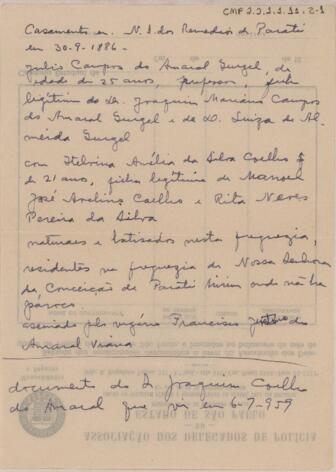 CMF 2.2.1.1.11.2-1
Casamento em N. S. dos Remedios de Parati
em 30-9-1886-
Julio Campos do Amaral Gurgel, de
idade de 25 anos, professor, filho
legítimo do Dr. Joaquim Mariano Campos
do Amaral Gurgel e de D. Luiza de Al-
meida Gurgel
com Etelvina Amélia da Silva Coelho
de 21 ano, filha legítima de Manoel
José Avelino Coelho e Rita Neves
Pereira da Silva
naturaes e batisados nesta freguezia,
residentes na freguezia de Nossa Senhora
da Conceição de Parati Mirim onde não ha
pároco
assinado pelo vigário Francisco do
Amaral Viana
documento do Dr Joaquim Coelho
do Amaral que vi em 6-7-959
ESTADO DE SÃO PAULO
ASSOCIAÇÃO DOS DELEGADOS DE POLICIA